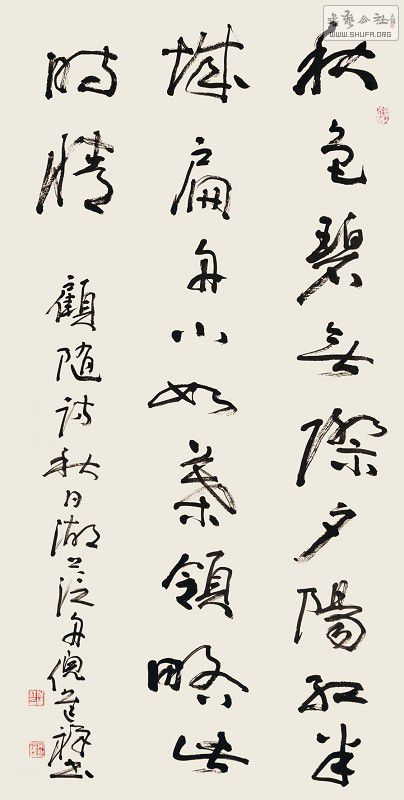 秋色碧無際夕陽紅半
城扁舟小如葉領略此
時情
顧隨詩秋日湖上泛舟倪進祥書
書藝公社
WWW.SHUFA.ORG